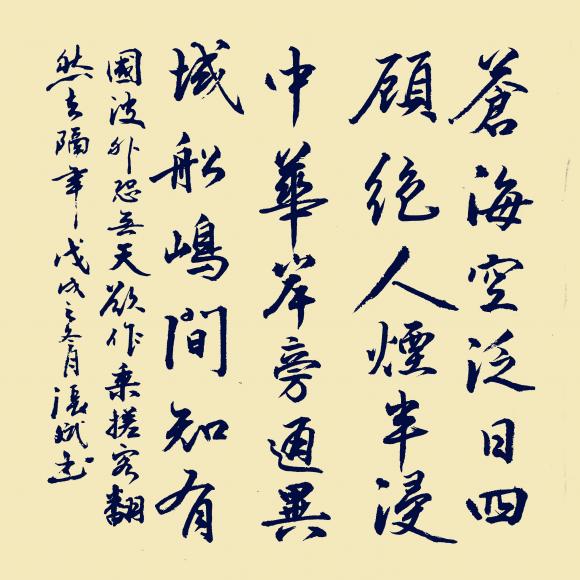 蒼海空泛日四
顧絕人煙半浸
中華岸旁通異
域船嶋間知有
國波外恐無天欲作乘槎客翻
然去隔年戊戌之冬月張斌書